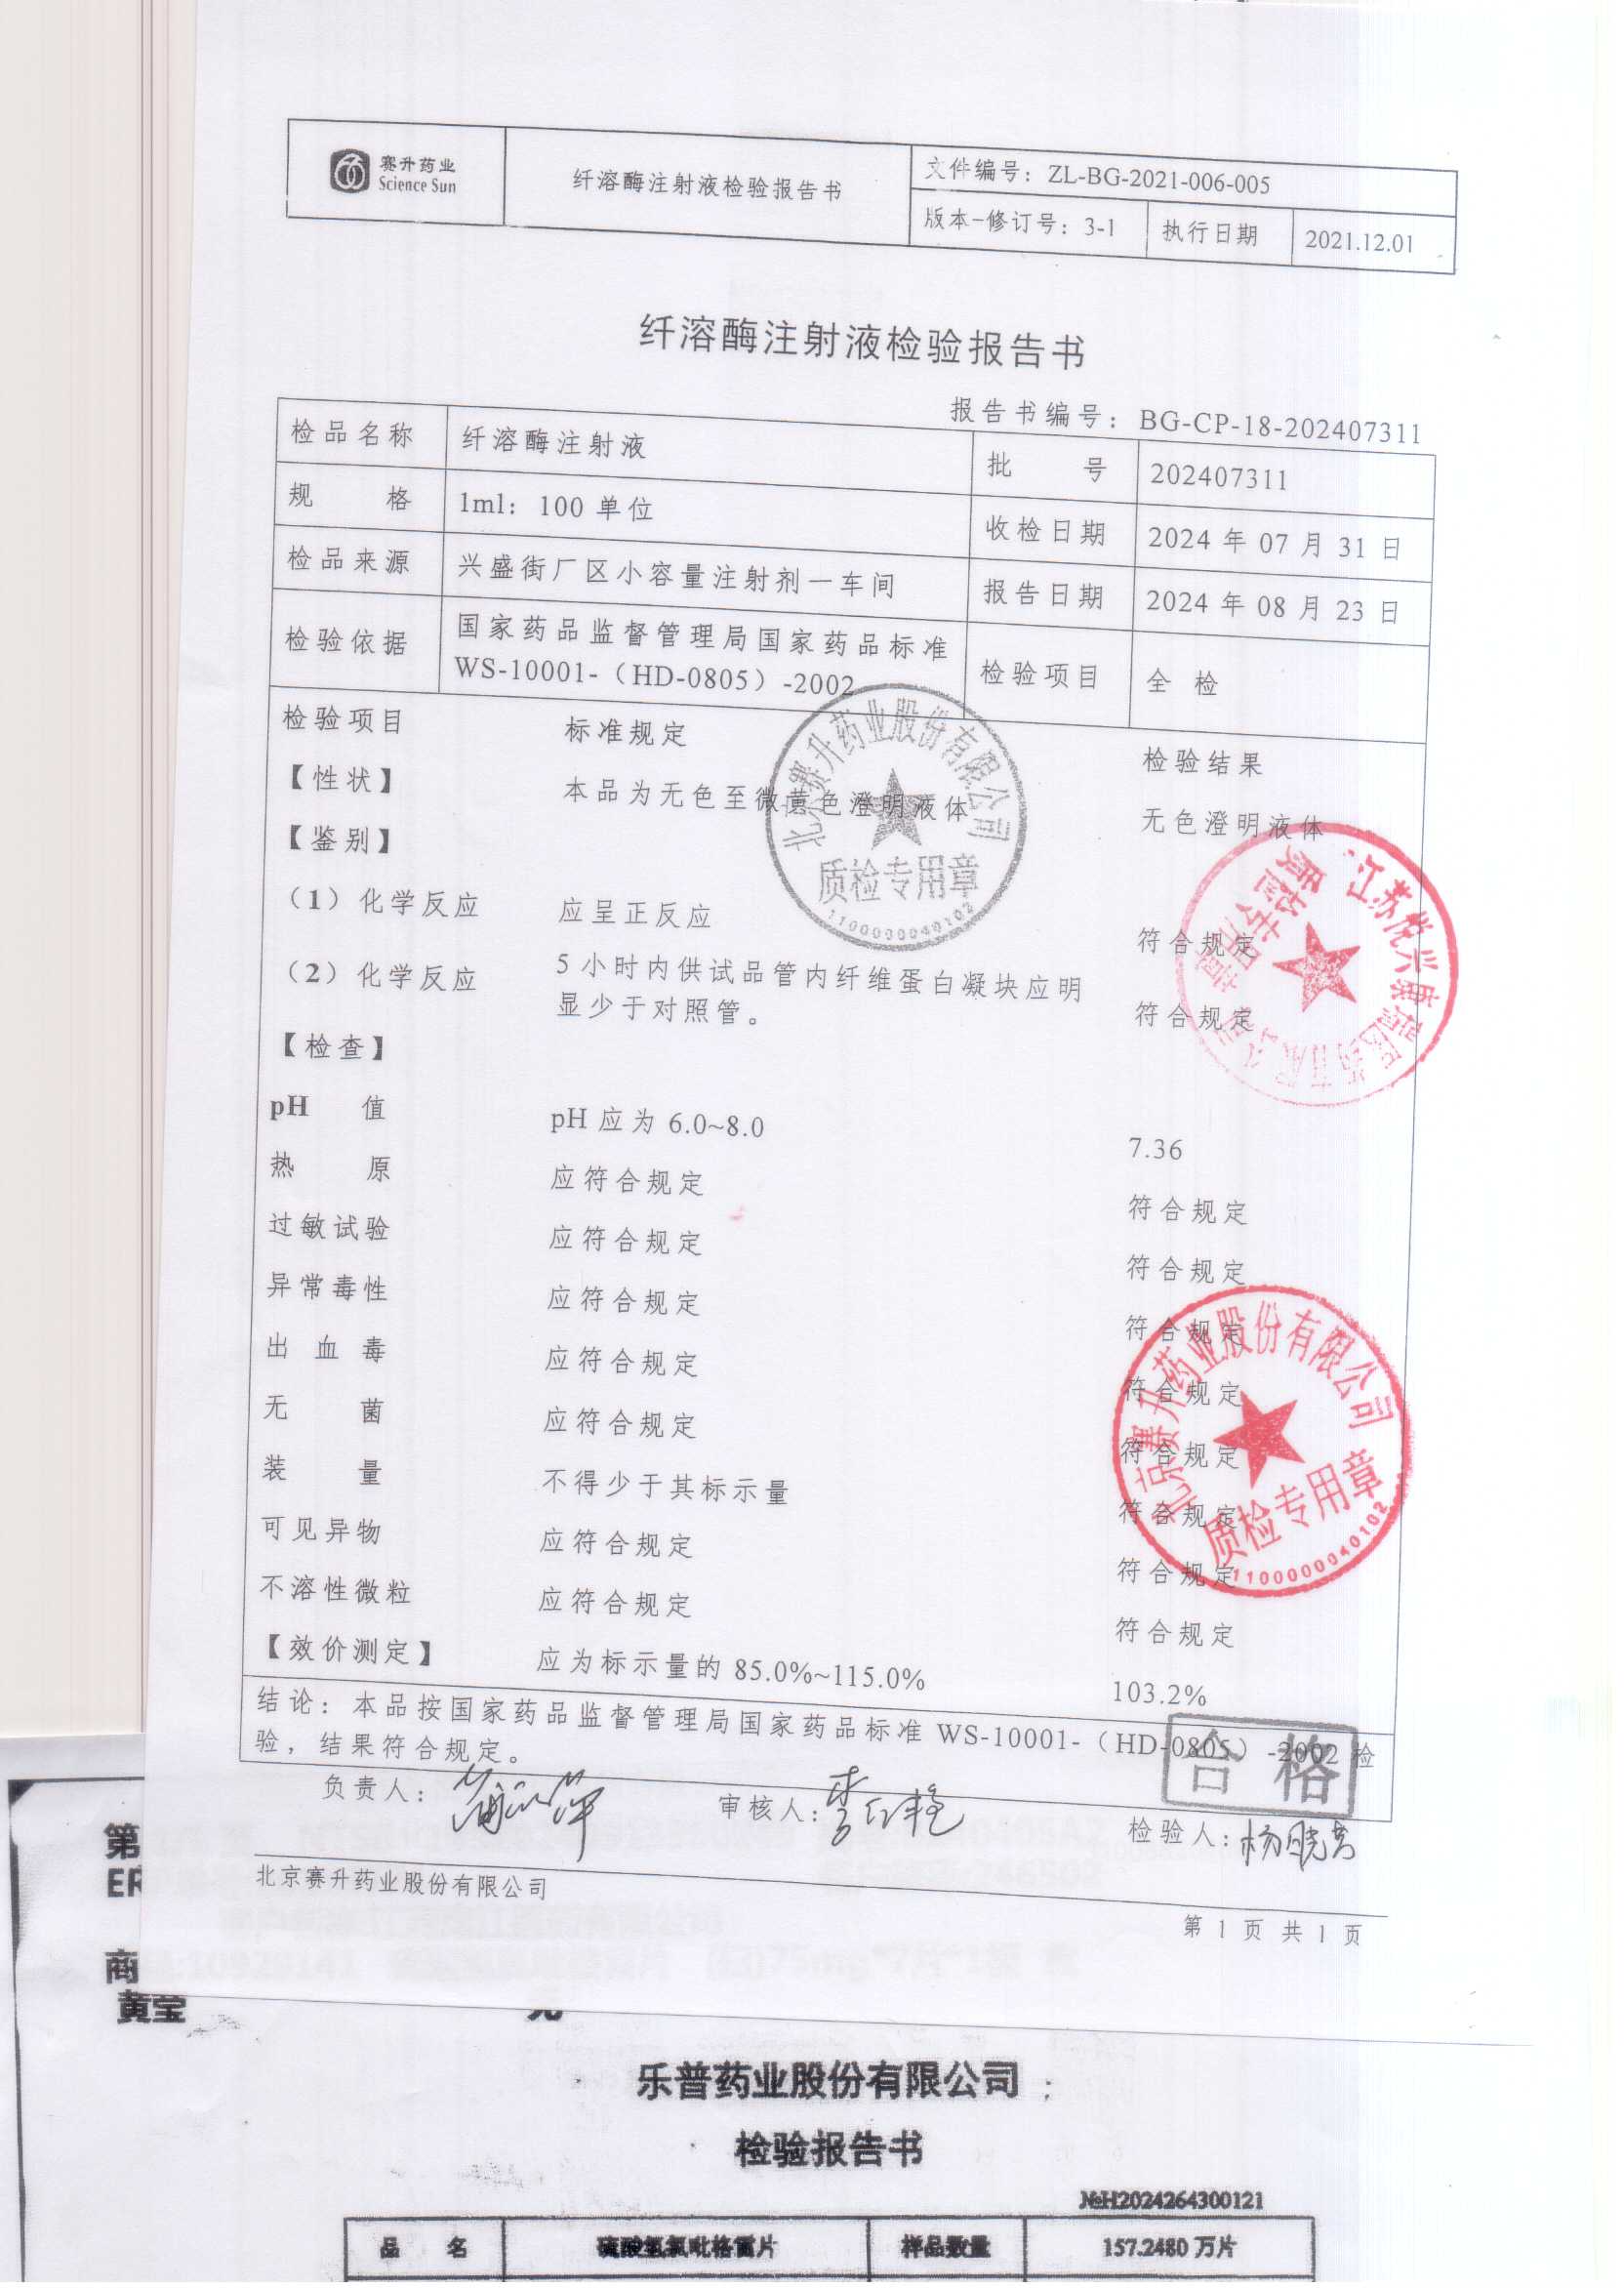 赛升药业
Science Sun
纤溶酶注射液检验报告书
文件编号：ZL-BG-2021-006-005
版本-修订号：3-1 执行日期 2021.12.01
纤溶酶注射液检验报告书
报告书编号：BG-CP-18-202407311
检品名称 纤溶酶注射液 批 号 202407311
规 格 1ml：100 单位 收检日期 2024 年 07 月 31 日
检品来源 兴盛街厂区小容量注射剂一车间 报告日期 2024 年 08 月 23 日
检验依据 国家药品监督管理局国家药品标准
WS-10001-（HD-0805）-2002 检验项目 全 检
检验项目 标准规定 检验结果
【性状】 本品为无色至微黄色澄明液体 无色澄明液体
【鉴别】
（1）化学反应 应呈正反应 符合规定
（2）化学反应 5 小时内供试品管内纤维蛋白凝块应明
显少于对照管。 符合规定
【检查】
pH 值 pH 应为 6.0~8.0 7.36
热 原 应符合规定 符合规定
过敏试验 应符合规定 符合规定
异常毒性 应符合规定 符合规定
出 血 毒 应符合规定 符合规定
无 菌 应符合规定 符合规定
装 量 不得少于其标示量 符合规定
可见异物 应符合规定 符合规定
不溶性微粒 应符合规定 符合规定
【效价测定】 应为标示量的 85.0%~115.0% 103.2%
结论：本品按国家药品监督管理局国家药品标准 WS-10001-（HD-0805）-2002 检
验，结果符合规定。
合格
负责人： 审核人：李红艳 检验人：杨晓芳
北京赛升药业股份有限公司
第 1 页 共 1 页
北京赛升药业股份有限公司
质检专用章
1100000040102
江苏悦兴康瑞医药有限公司
质管专用章
北京赛升药业股份有限公司
质检专用章
1100000040102
第
ER
商
黄莹
乐普药业股份有限公司
检验报告书
№H2024264300121
品 名 硫酸氢氯吡格雷片 样品数量 157.2480 万片